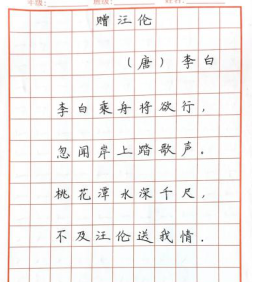 赠汪伦
（唐）李白
李白乘舟将欲行，
忽闻岸上踏歌声。
桃花潭水深千尺，
不及汪伦送我情.